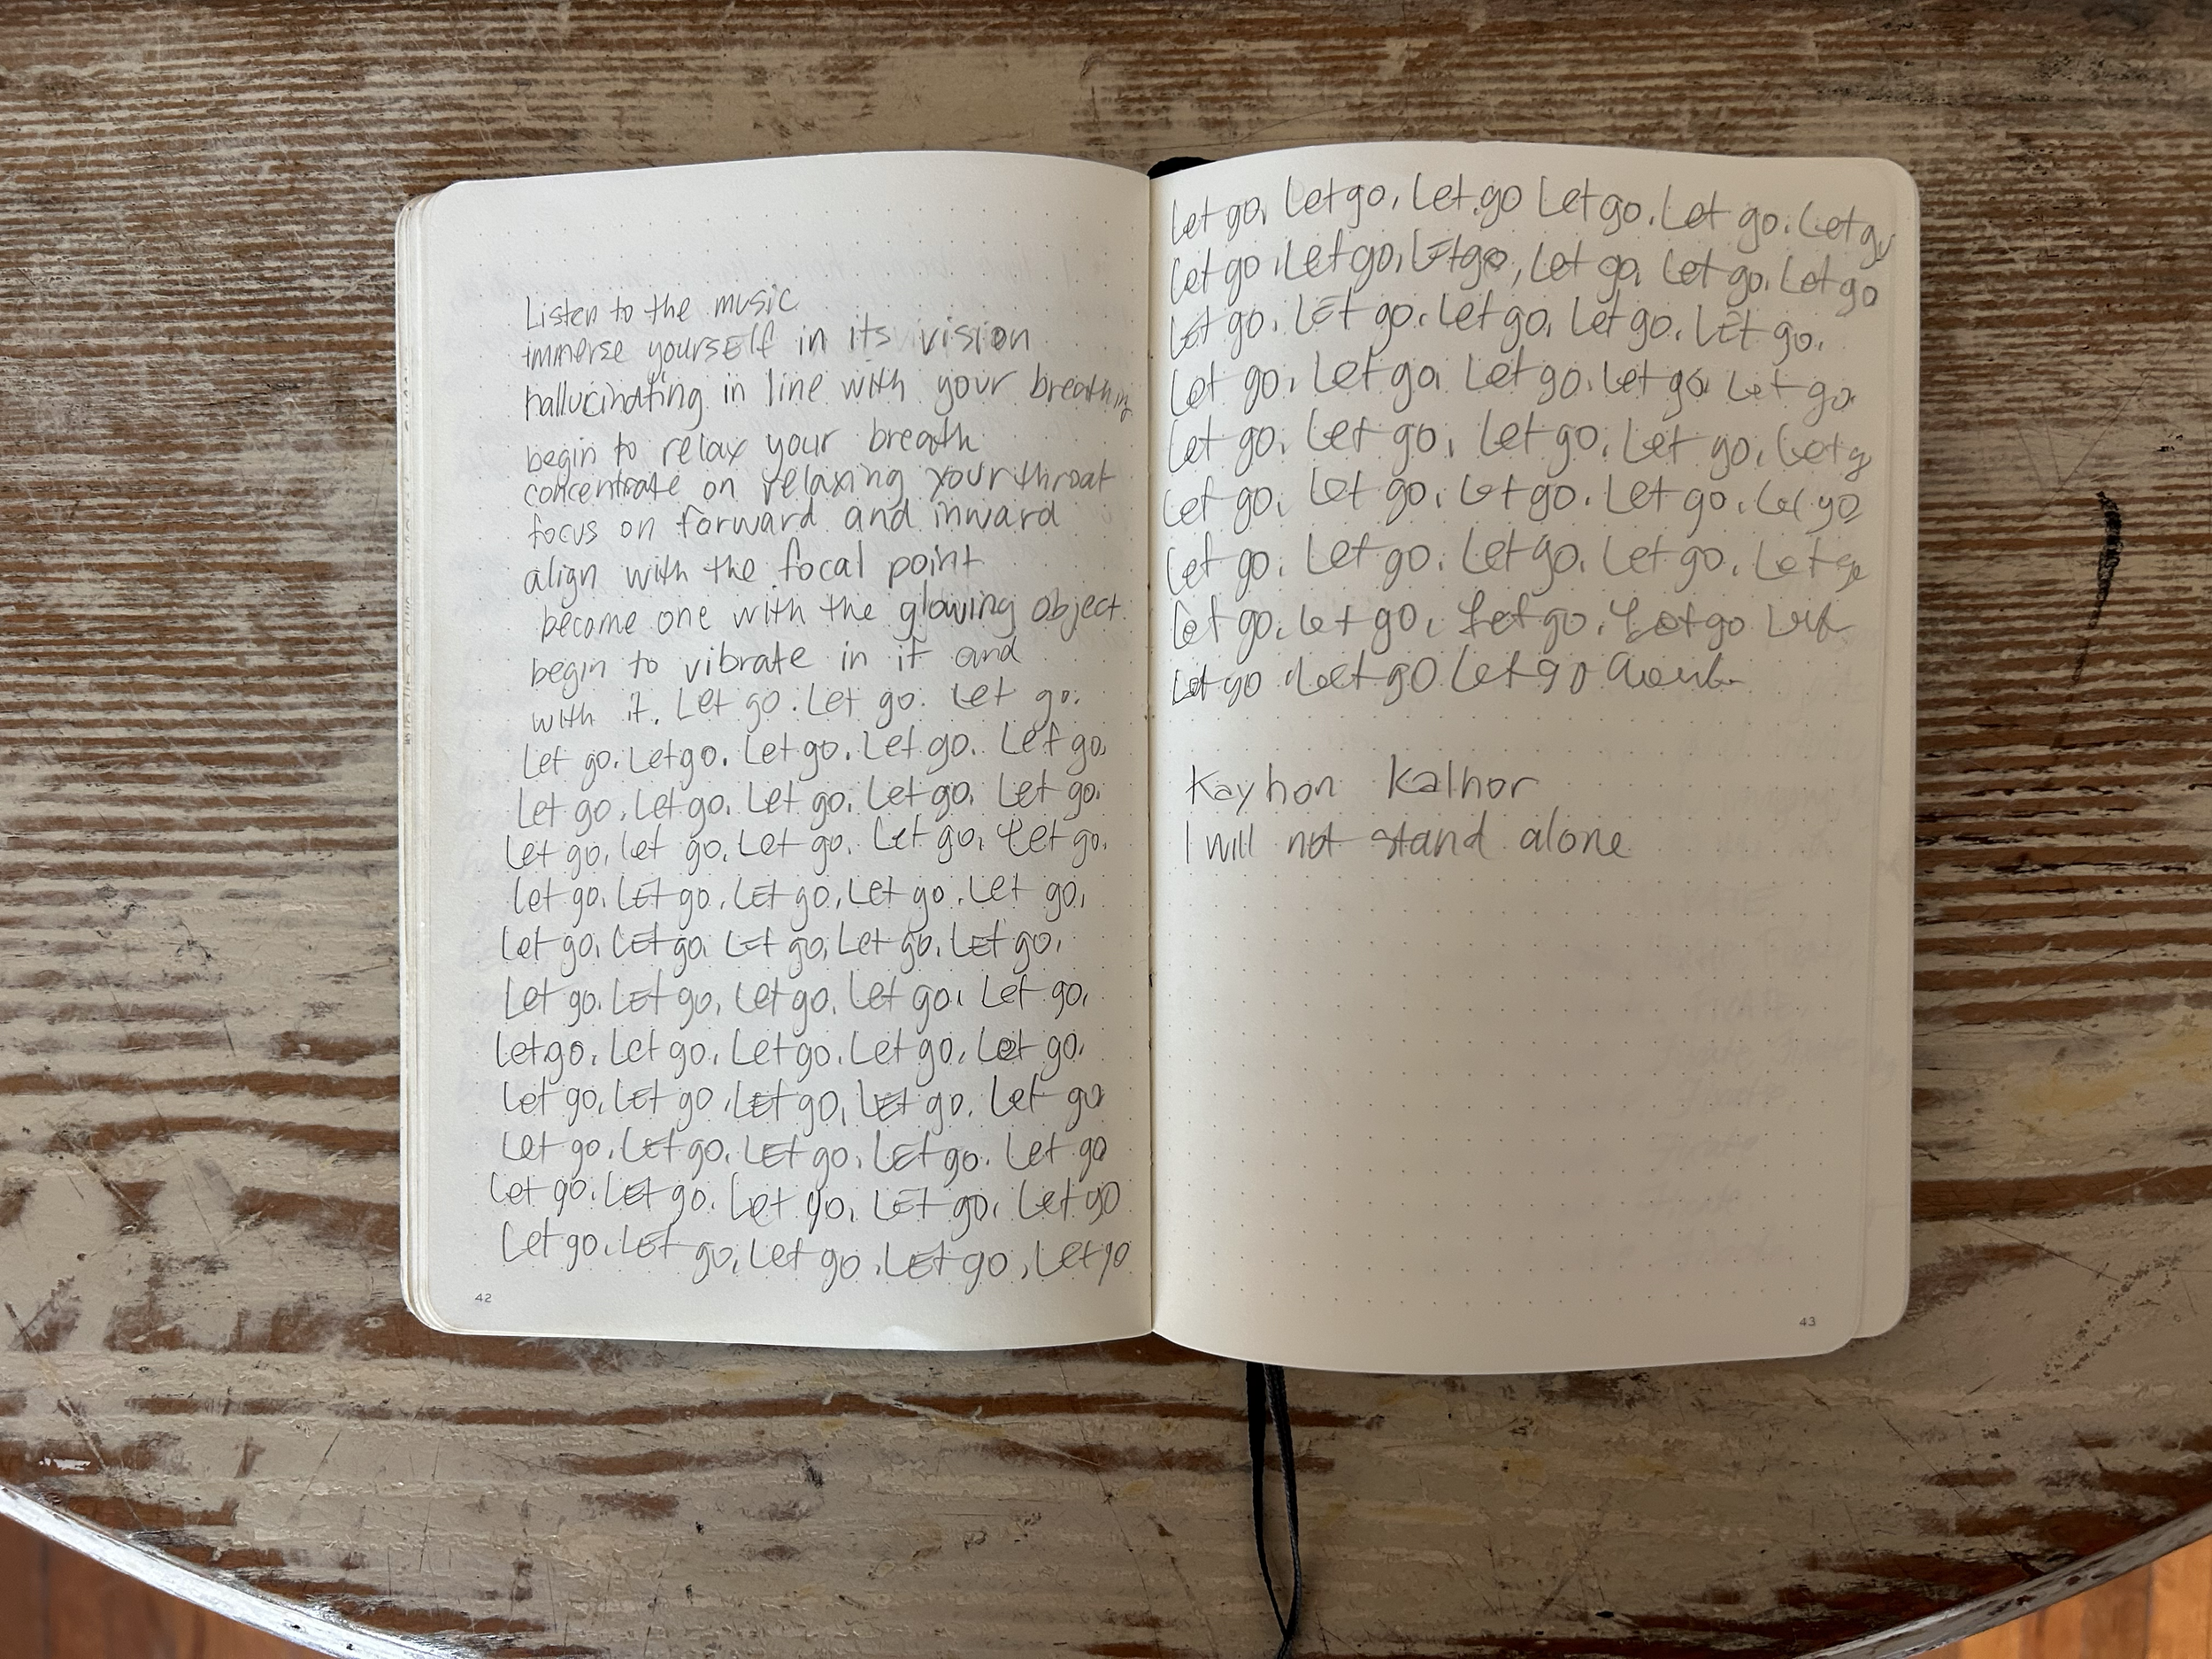 Listen to the music
immerse yourself in its vision
hallucinating in line with your breathing
begin to relax your breath
concentrate on relaxing your throat
focus on forward and inward
align with the focal point
become one with the glowing object.
begin to vibrate in it and
with it. Let go. Let go. Let go.
Let go. Let go. Let go. Let go. Let go.
Let go, Let go. Let go. Let go. Let go.
Let go, let go. Let go. Let go, Let go.
Let go. LEt go, LEt go, LEt go. Let go,
Let go, LEt go, LEt go, Let go, LEt go.
Let go. LEt go, Let go, Let go, Let go,
Let go, Let go, Let go. Let go, Let go.
Let go, LEt go, LEt go, LEt go. Let go
Let go, LEt go, LEt go, LEt go. Let go
Let go. LEt go. Let go, LEt go, Let go
Let go, LEt go, Let go, LEt go, Let go
42
Let go, Let go, Let go Let go, Let go. Let go
Let go, Let go, LEt go, Let go, Let go, Let go
LEt go. LEt go. Let go, Let go. LEt go.
Let go, Let go, Let go. Let go, Let go.
Let go, Let go, Let go, Let go, Let g
Let go, Let go, Let go. Let go, Let go
Let go, Let go. Let go. Let go, Let go
Let go, Let go, Let go. Let go
Let go Let go Let go
Kayhon Kalhor
I will not stand alone
43